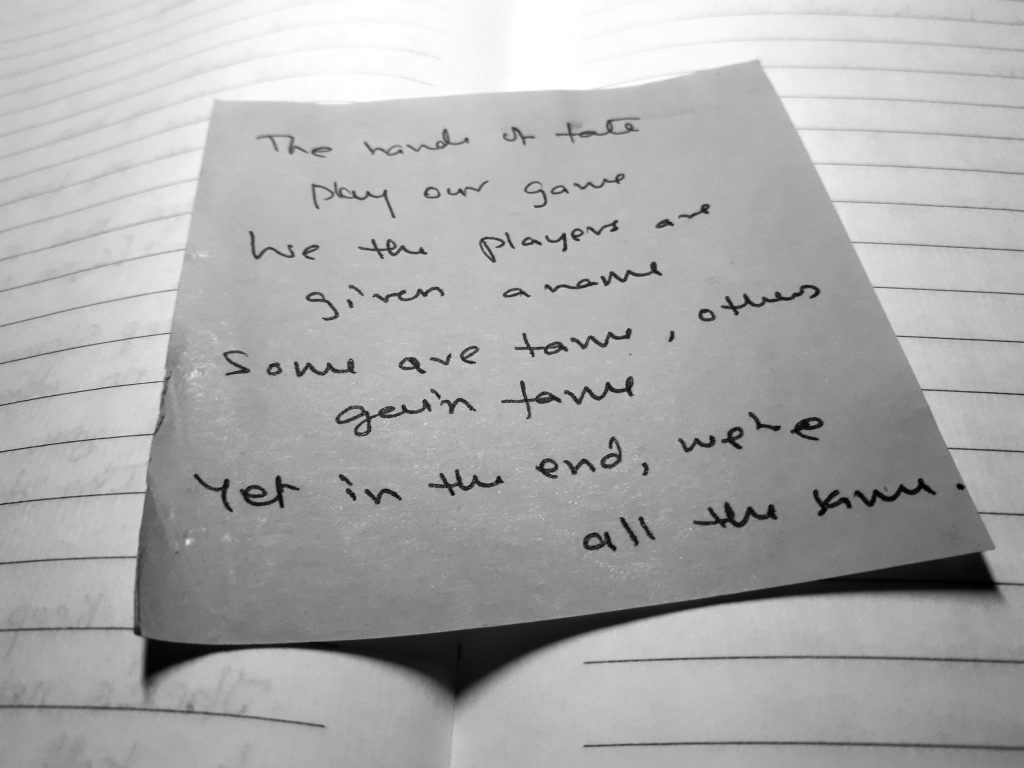 The hands of fate
play our game
We the players are
given a name
Some are tame, others
gain fame
Yet in the end, we're
all the same.